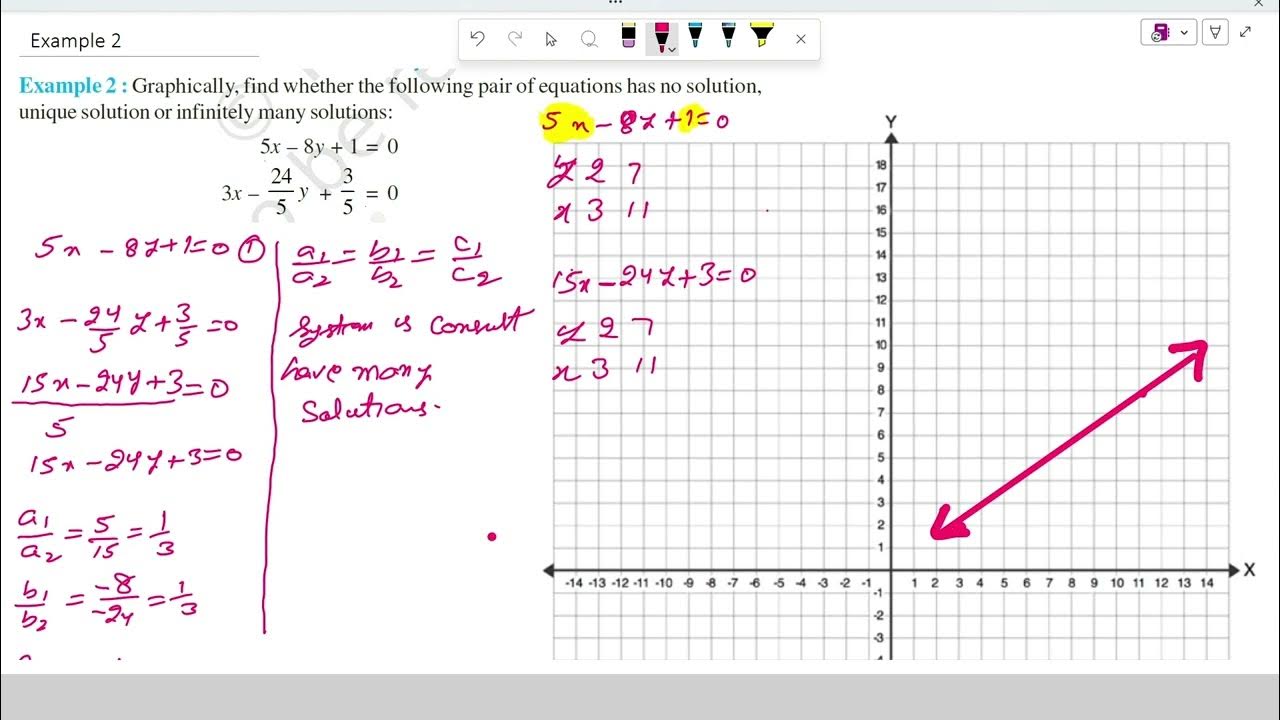 Example 2
Example 2 : Graphically, find whether the following pair of equations has no solution,
unique solution or infinitely many solutions:
5x – 8y + 1 = 0
3x – 24/5 y + 3/5 = 0
5x - 8y + 1 = 0 ①
3x - 24/5 y + 3/5 = 0
15x - 24y + 3 = 0
5
15x - 24y + 3 = 0
a1/a2 = 5/15 = 1/3
b1/b2 = -8/-24 = 1/3
a1/a2 = b1/b2 = c1/c2
System is
have many
Solutions.
5x - 8y + 1 = 0
y 2 7
x 3 11
15x - 24y + 3 = 0
y 2 7
x 3 11
Y
18
17
16
15
14
13
12
11
10
9
8
7
6
5
4
3
2
1
-14 -13 -12 -11 -10 -9 -8 -7 -6 -5 -4 -3 -2 -1 1 2 3 4 5 6 7 8 9 10 11 12 13 14 X
-1
-2
-3